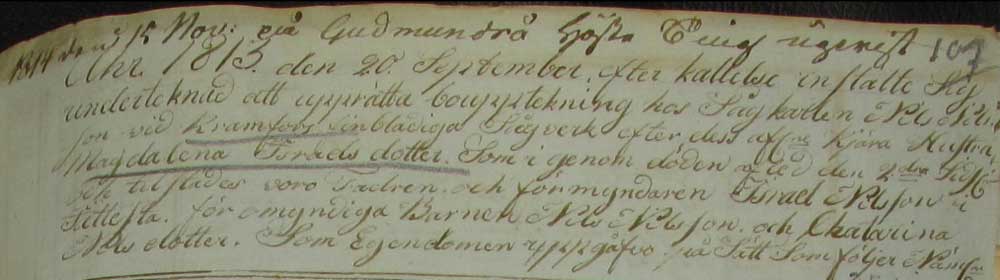 1814 den 15 Nov: på Gudmundrå Höste Ting ingevist 107
Åhr 1813. den 20. September, efter kallelse instälte Sig
underteknad att upprätta bouppteckning hos Sågkarlen Nils Nils
son vid Kramfors finbladiga Sågverk efter dess afl:ne Kjära Hustru
Magdalena Israels dotter. Som i genom döden afled den 2:dra
tilstädes voro Fadren och förmyndaren Israel Nilsson i
för omyndiga Barnen Nils Nilsson och Chatarina
Nils dotter. Som Egendomen uppgåfvo på Sätt Som följer